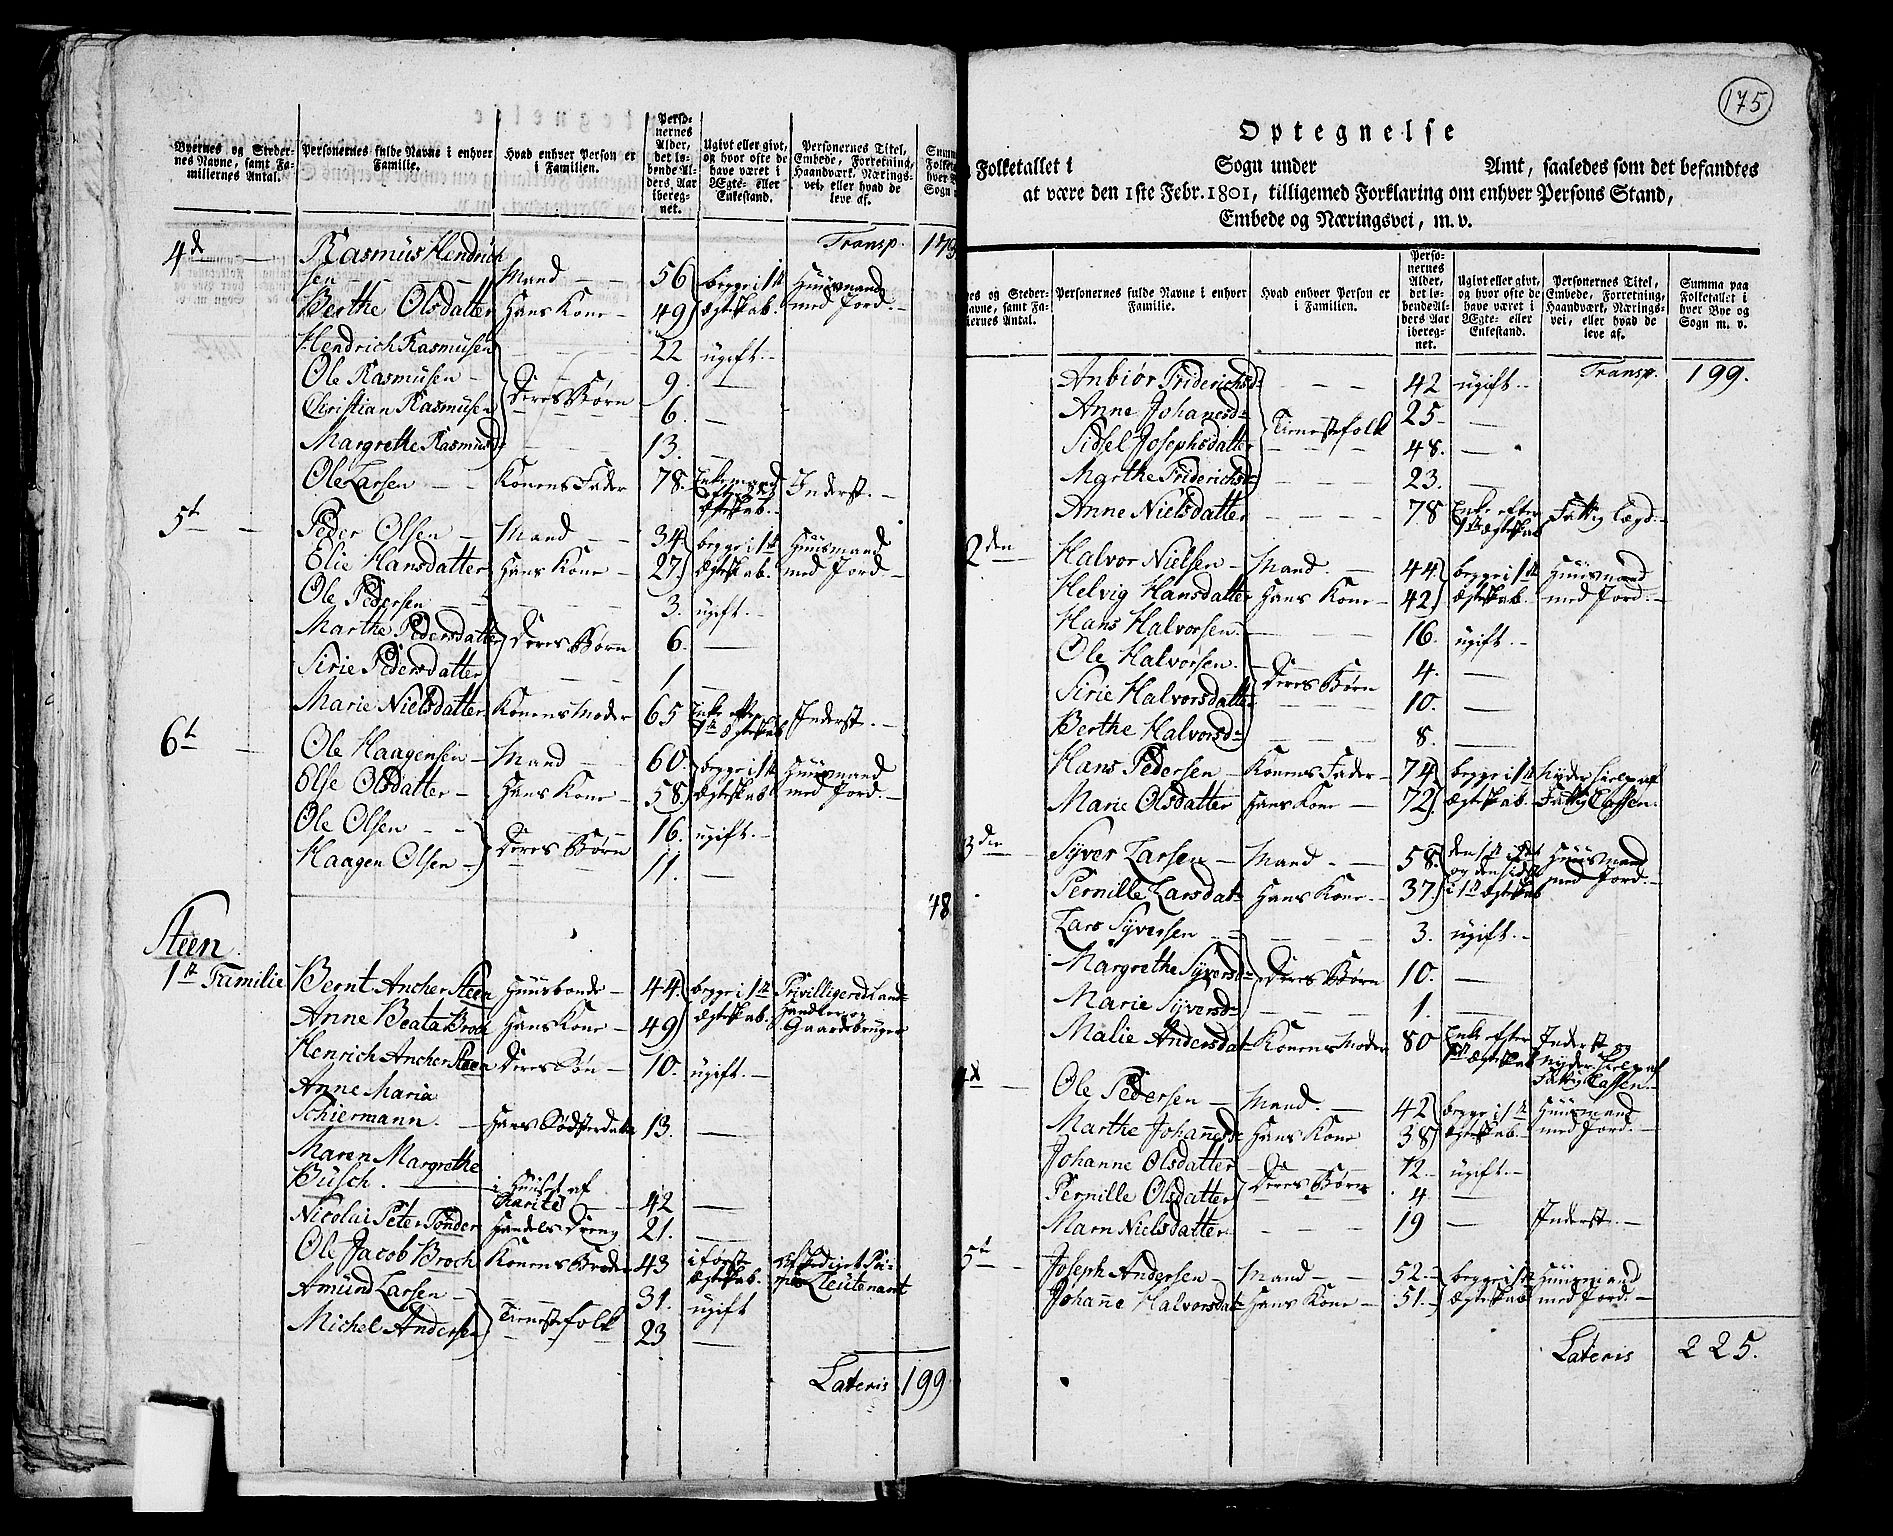 Byernes og Steder-
nes Navne, samt Fa-
miliernes Antal.
Personernes fulde Navne i enhver
Familie.
Hvad enhver Person er
i Familien.
Perso-
nernes
Alder,
det lø-
bende Al-
ders Aar
ibereg-
net.
Ugivt eller givt,
og hvor ofte de
have været i
Ægte- eller
Enkestand.
Personernes Titel,
Embede, Forretning,
Haandværk, Nærings-
vei, eller hvad de
leve af.
Transp. 179
4de Rasmus Hendrich
sen Mand 56 begge i 1ste Huusmand
Berthe Olsdatter Hans Kone 49 Ægteskab. med Jord.
Hendrich Rasmusen 22 ugift.
Ole Rasmusen 9.
Deres Børn
Christian Rasmusen 6.
Margrethe Rasmusd: 13.
Ole Larsen Konens Fader 78. Enkemand Inderst.
Ægteskab.
5te Peder Olsen Mand 34. begge i 1ste Huusmand
Elie Hansdatter Hans Kone 27. Ægteskab. med Jord.
Ole Pedersen 3. ugift.
Marthe Pedersdatter Deres Børn 6.
Sirie Pedersdatter 1.
Marie Nielsdatter Konens Moder 65 Enke efter Inderst.
1ste Ægteskab
6te Ole Haagensen Mand 60. begge i 1ste Huusmand
Else Olsdatter Hans Kone 58. Ægteskab. med Jord.
Ole Olsen 16. ugift.
Deres Børn
Haagen Olsen 11.
48
Steen
1ste Familie Bernt Ancher Steen Huusbonde 44. begge i 1ste Privilligered Land-
Handler og
Anne Beata Broch Hans Kone 49 Ægteskab. Gaardsbruger
Henrich Ancher Steen Deres Søn 10. ugift.
Anne Maria
Schiermann. Hans Sødsterdatter 13.
Maren Margrethe
Busch. i Huuset af
Karité 42
Nicolai Peter Tønder Handels Dreng 21.
Ole Jacob Broch Konens Broder 43 i første
Ægteskab. Lieutenant
Amund Larsen 31. ugift
Tienestefolk
Michel Andersen 23
Lateris 199
175
Optegnelse
Folketallet i Sogn under Amt, saaledes som det befandtes
at være den 1ste Febr. 1801, tilligemed Forklaring om enhver Persons Stand,
Embede og Næringsvei, m. v.
nes og Steder-
avne, samt Fa-
iernes Antal.
Personernes fulde Navne i enhver
Familie.
Hvad enhver Person er
i Familien.
Perso-
nernes
Alder,
det lø-
bende Al-
ders Aar
ibereg-
net.
Ugivt eller givt,
og hvor ofte de
have været i
Ægte- eller
Enkestand.
Personernes Titel,
Embede, Forretning,
Haandværk, Nærings-
vei, eller hvad de
leve af.
Summa paa
Folketallet i
hver Bye og
Sogn m. v.
Transp. 199.
Anbiør Friderichsd: 42 ugift.
Anne Johanesd: 25
Tienestefolk
Sidsel Josephsdatter 48.
Marthe Friderichsd: 23.
Anne Nielsdatter 78 Enke efter Fattig Lægd.
1ste Ægteskab
2den Halvor Nielsen Mand. 44 begge i 1ste Huusmand
Helvig Hansdatter Hans Kone 42 Ægteskab. med Jord.
Hans Halvorsen. 16. ugift.
Ole Halvorsen. 4.
Deres Børn
Sirie Halvorsdatter 10.
Berthe Halvorsd: 8.
Hans Pedersen Konens Fader 74 begge i 1ste Nyder Hielp af
Marie Olsdatter Hans Kone 72. Ægteskab. Fattig Cassen.
3die Syver Larsen Mand. 58. den 1ste i Huusmand
og den sidste
Pernille Larsdat: Hans Kone. 37. i 1ste Ægteskab med Jord.
Lars Syversen 3. ugift.
Margrethe Syversd: Deres Børn 10.
Marie Syversd: 1.
Malie Andersdat: Konens Moder 80 Enke efter Inderst og
1ste Ægteskab nyder Hielp af
Fattig Cassen
4de Ole Pedersen Mand. 42 begge i 1ste Huusmand
Marthe Johanesd: Hans Kone 38 Ægteskab. med Jord.
Johanne Olsdatter 12. ugift.
Deres Børn
Pernille Olsdatter 4
Marn Nielsdatter 19 Inderst.
5te Joseph Andersen Mand 52. begge i 1ste Huusmand
Johane Halvorsdat: Hans Kone 51. Ægteskab med Jord.
Lateris 225.